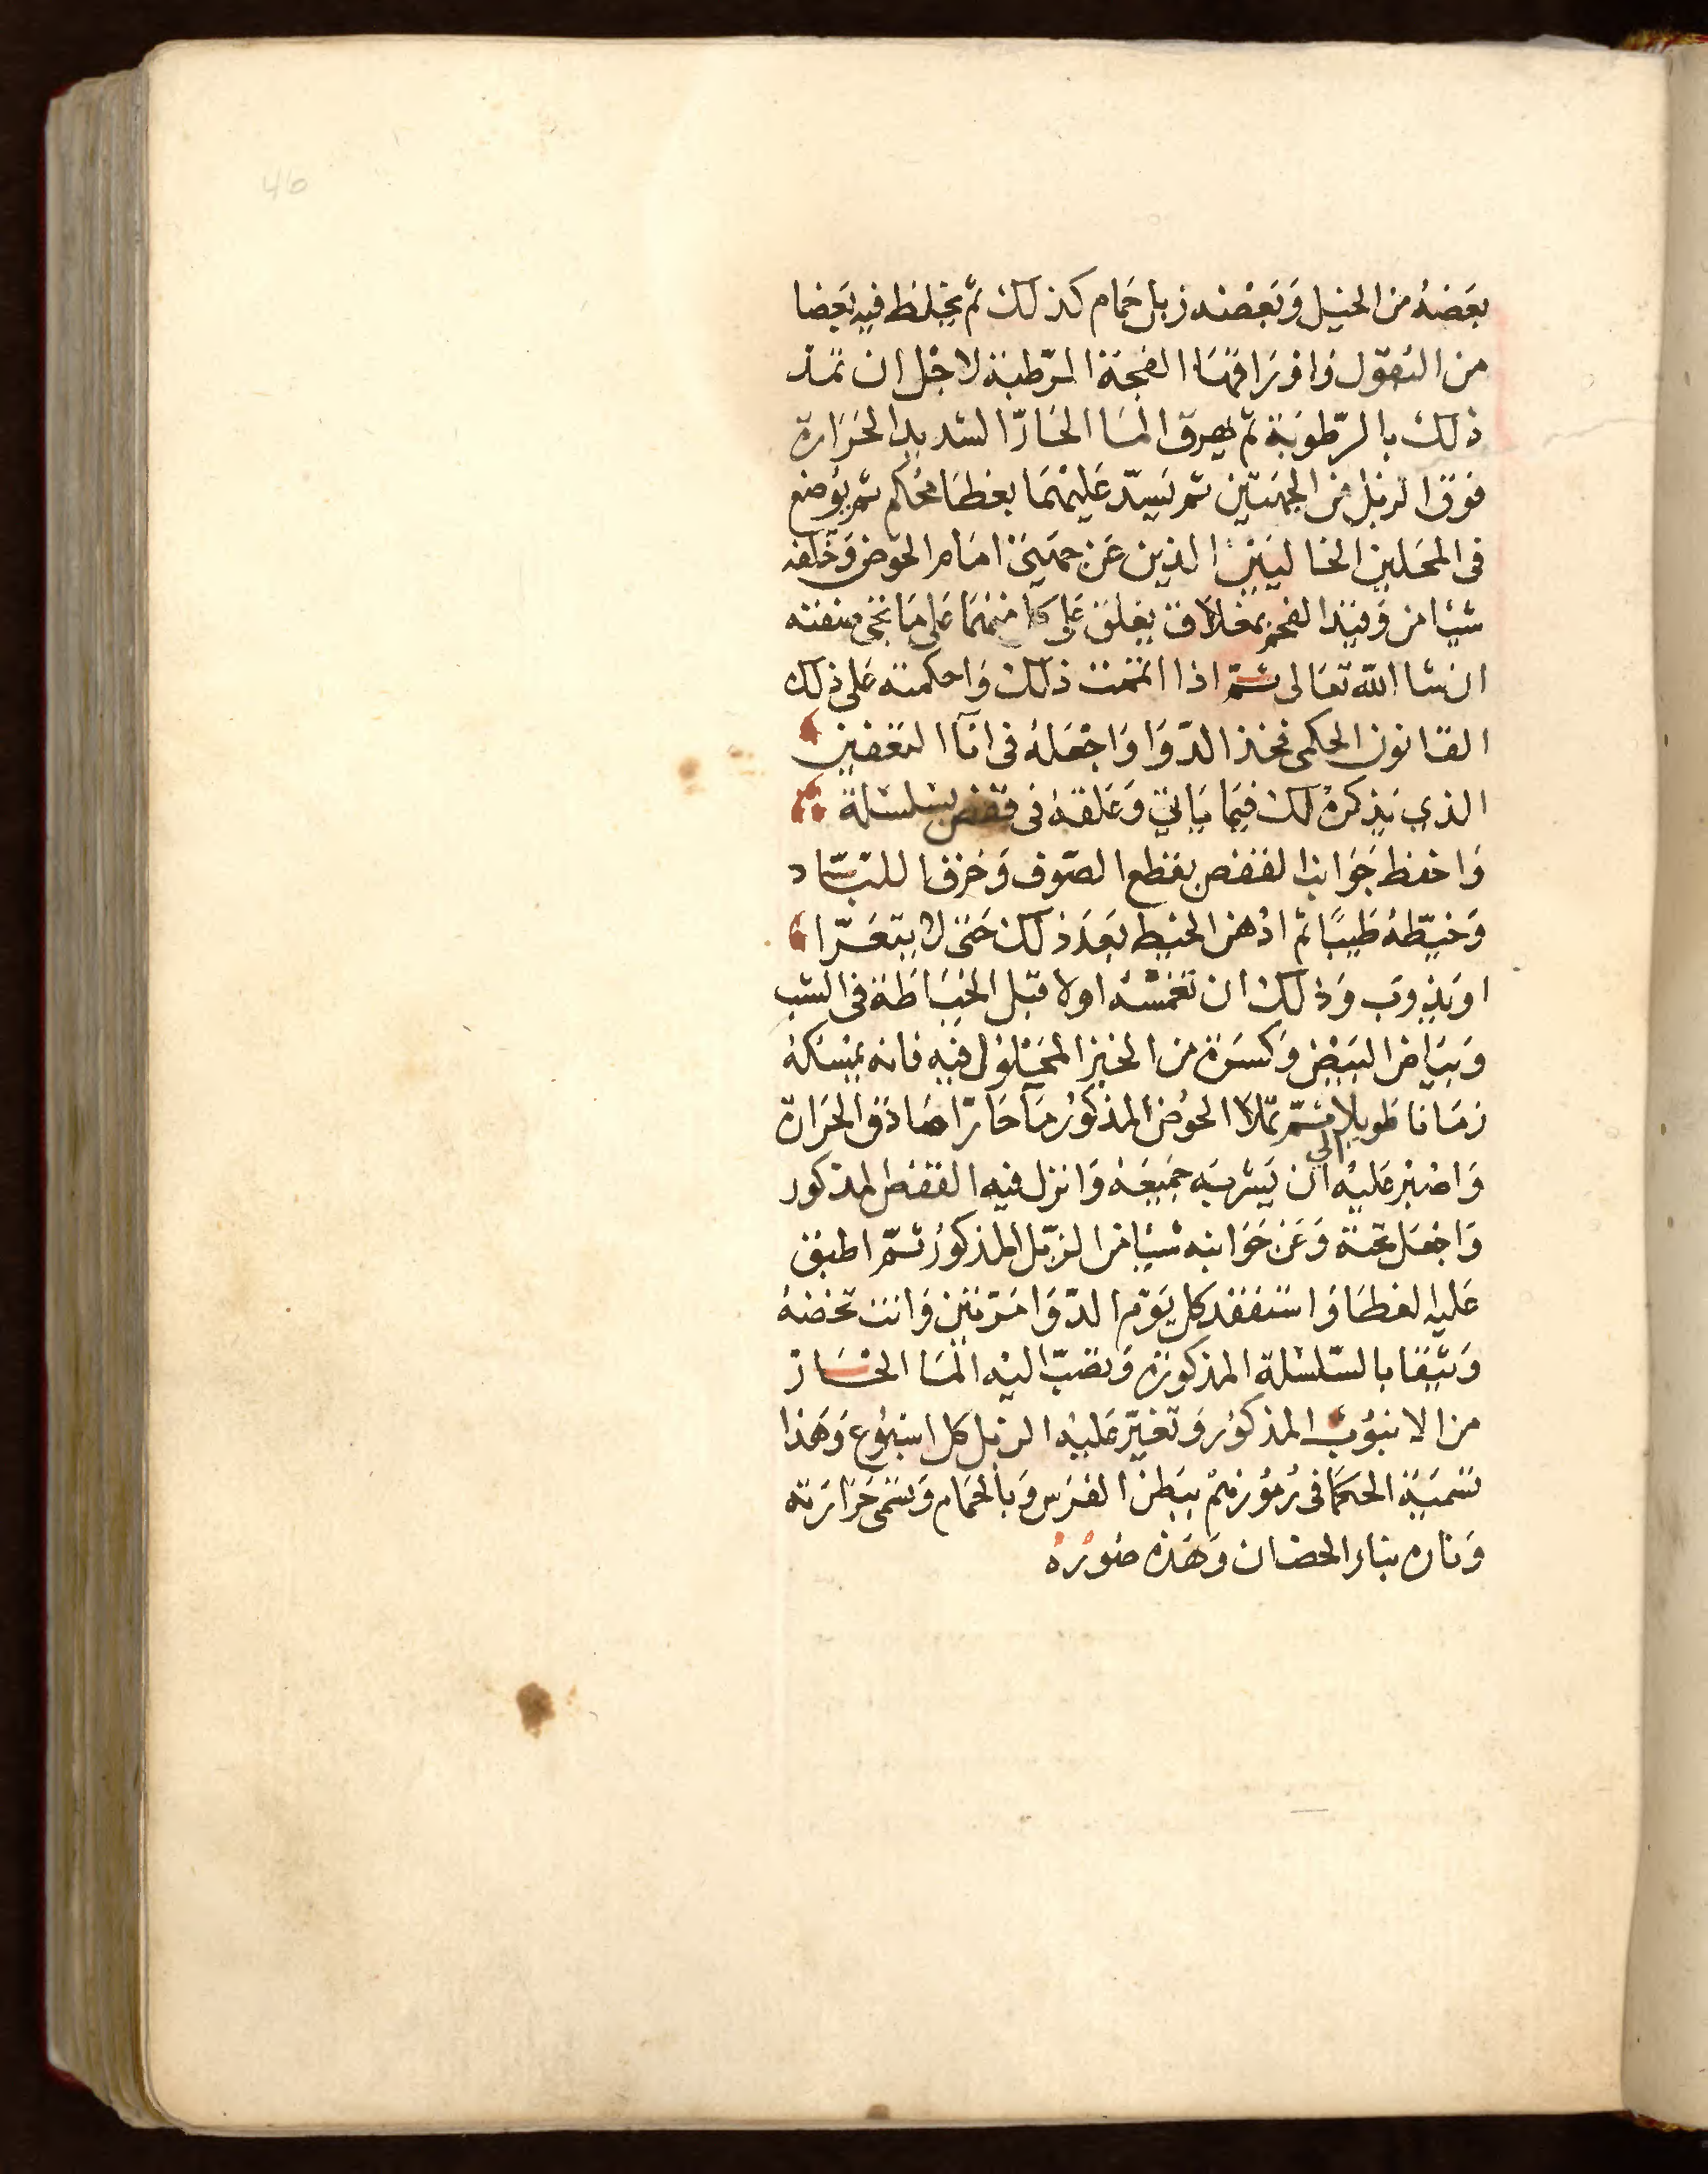 46
بعَضهُ من الخيل وَبعَضه زبل حمَام كذلك ثم يخلط فيه بعَضا
من البقول وَاورَاقهَا الفجة المرّطبة لاجل ان تمد
ذلك بالرّطوبَة ثم يهرق الما الحَارّ الشديد الحَرَارة
فوَق الزبل من الجهَتين ثم يَسدّ عَليهمَا بغطَا محُكم ثم يوُضع
فى المحَلين الخاليَين الذين عَن جهتى امَام الحوَض وَخَلفه
شيَا من وَقيَد الفحم بمغلاق يغلق عَلى كل منهمَا عَلى مَا تجى صفته
ان شا الله تعَالى ثمّ اذا اتممت ذلك وَاحكمته عَلى ذلك
القانون الحكمى فخذ الدّوَا وَاجْعَلهُ فى انآ التعَفين
الذي يَذكرهُ لك فيمَا يَاتي وَعَلقهُ فى قفص بسِلسلة
وَاحفظ جَوَانب القفص بقطع الصّوف وَخرق اللبّاد
وَخيّطهُ طَيبًا ثم ادُهن الخيط بَعدَ ذلك حَتى لا يتعَرّا
او يَذوب وَذلك ان تغمسْهُ اولا قبل الخيَاطَة فى الشب
وَبيَاض البَيض وَكسرَة من الخبز المحَلوُل فيه فانه يمسكهُ
زمَانا طَويلا ثمّ تملا الحوُض المذكوُر مآ حَارّا صَادق الحَرَارة
وَاصْبر عَليْه الى ان يَشربَه جَميعَهُ وَانزل فيه القفص المذكور
وَاجعَل تحتهُ وَعَن جَوَانبه شيَا من الزبل المذكوُر ثمّ اطبق
عَليه الغطَا وَاستفقد كل يوَم الدّوَا مَرّتين وَانت تخضهُ
وَثيقا بالسّلسْلة المذكورَة وَتصَبّ اليْه المَا الحَار
من الانبوُب المذكوُر وَتغيّر عَليْه الزبل كل اسبوُع وَهَذا
تسَميَة الحكمَا فى رُموُزهمْ ببَطن الفَرس وَبالحمَام وَتسَمى حَرَارَته
وَناره بنار الحضان وَهَذه صُورُهُ